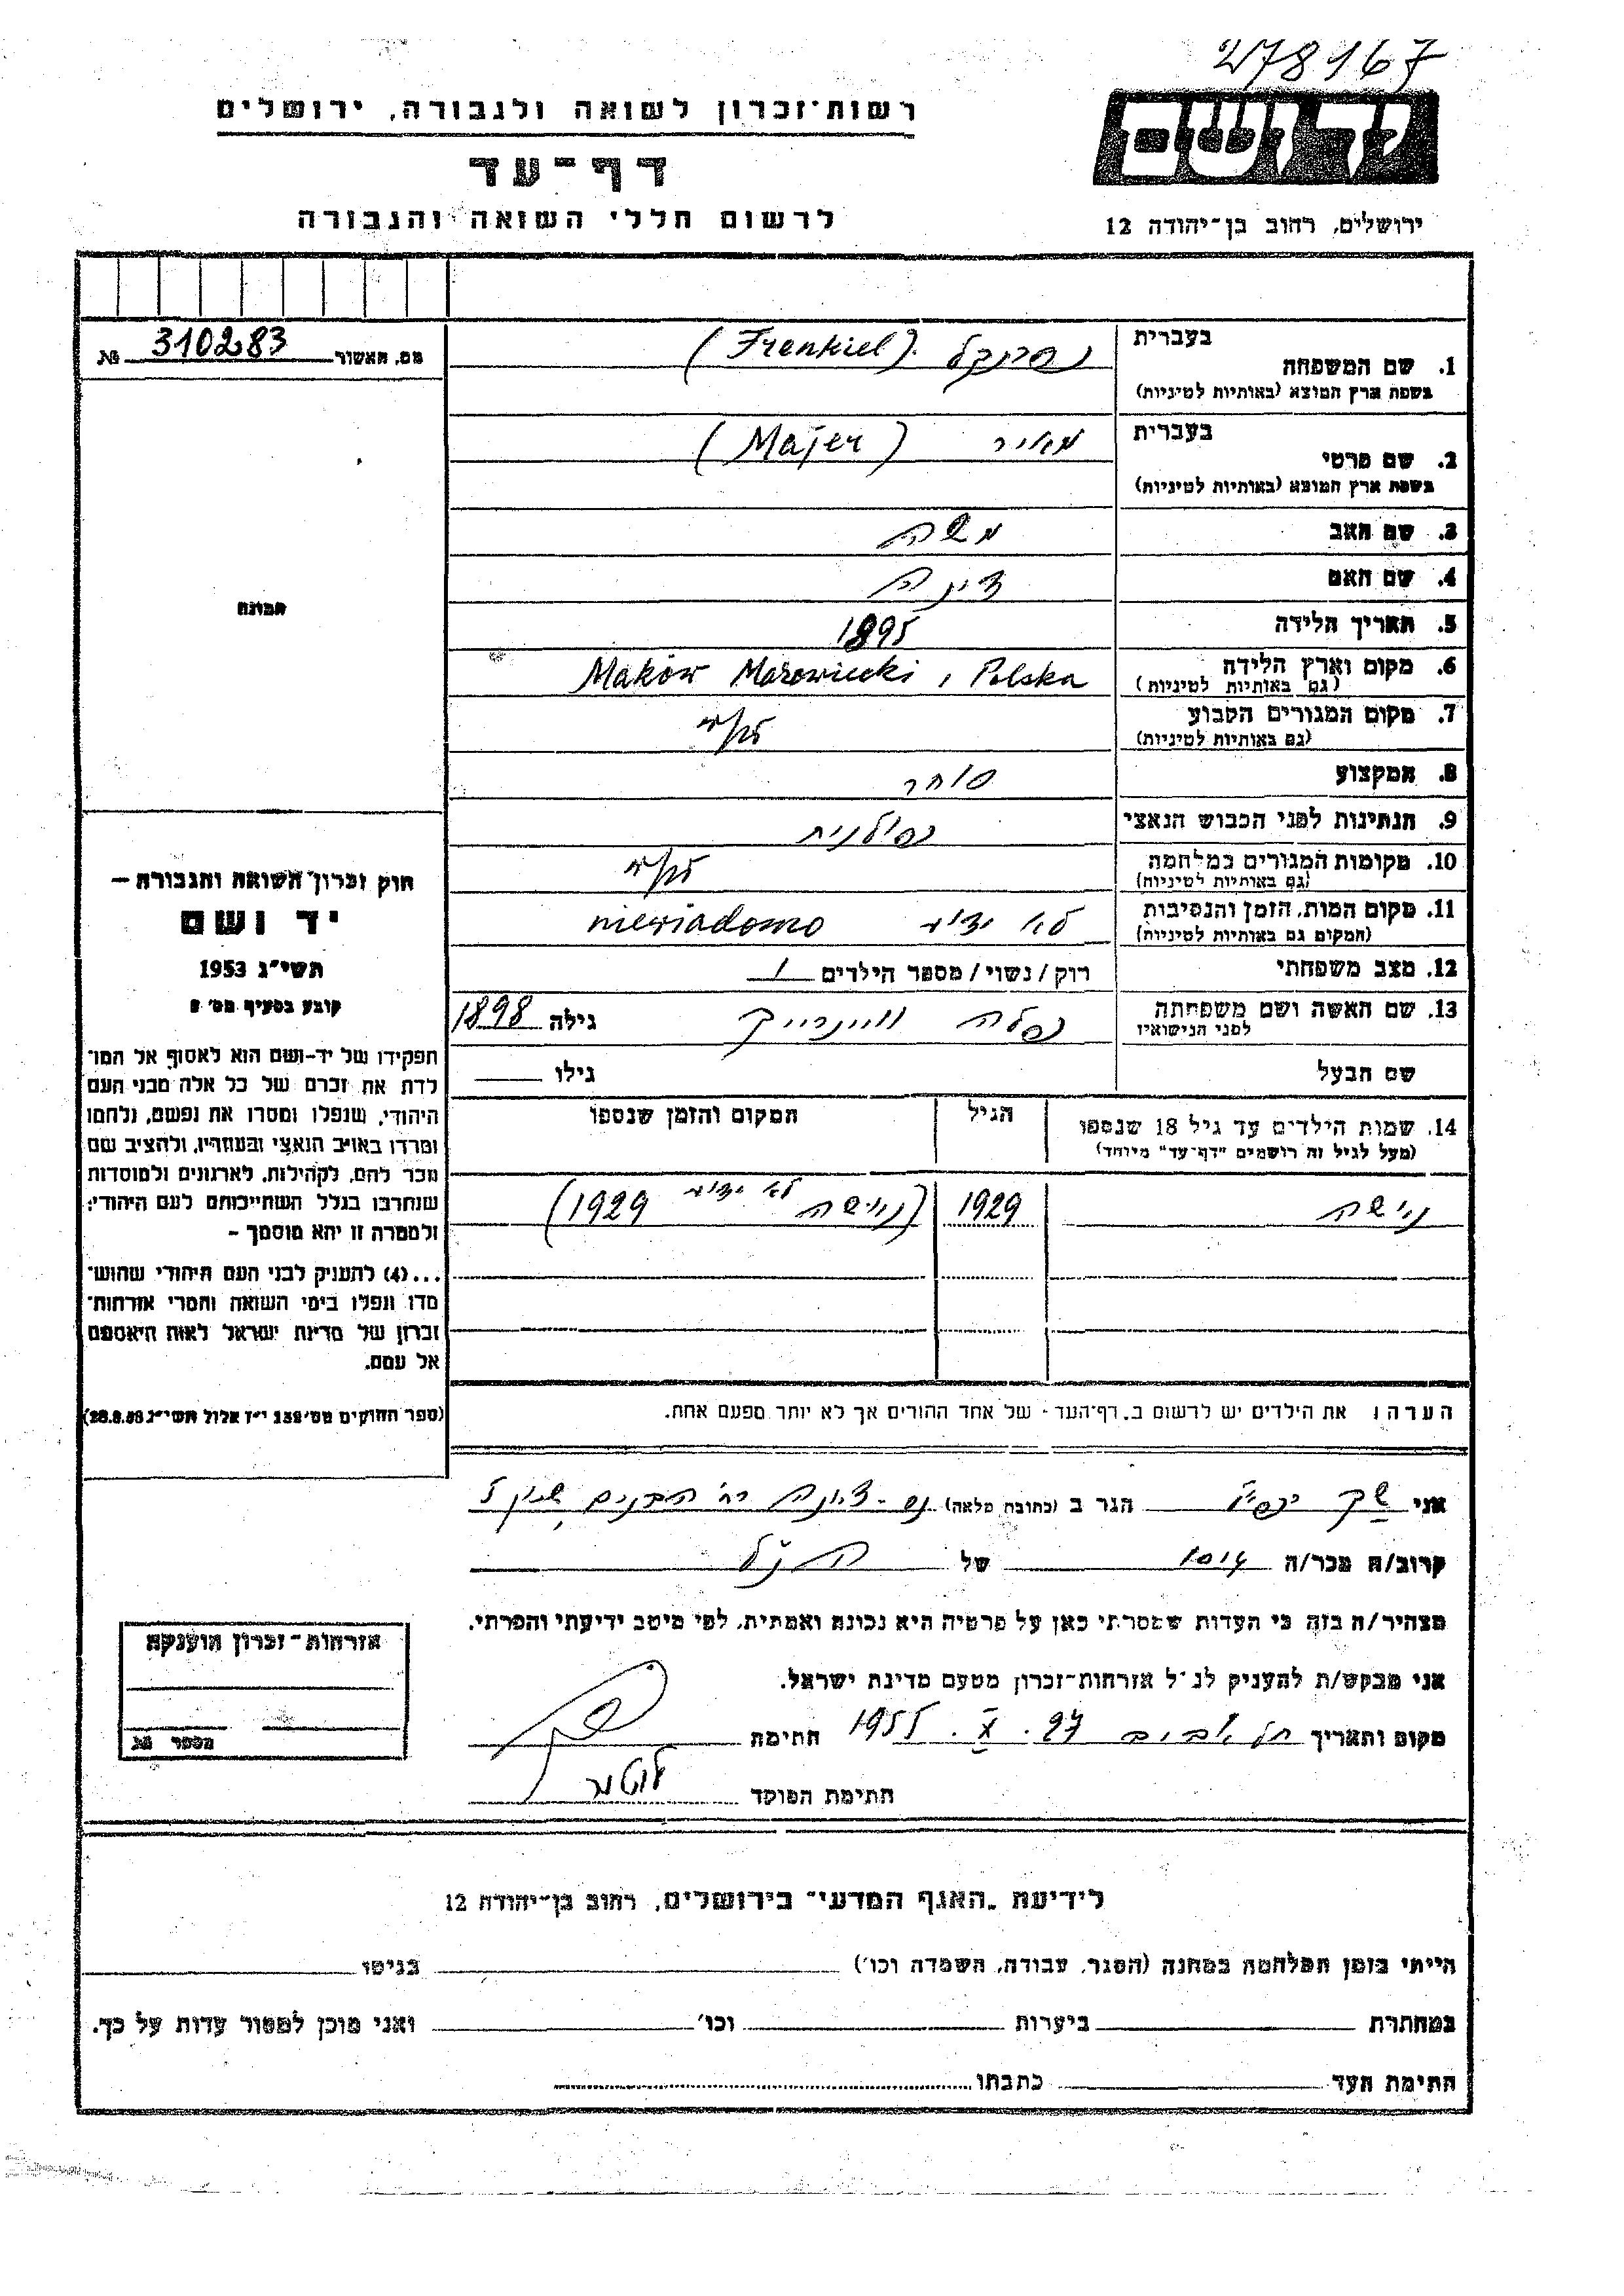 278167
יד ושם
רשות־זכרון לשואה ולגבורה, ירושלים
דף־עד
לרשום חללי השואה והגבורה
ירושלים, רחוב בן־יהודה 12
מס. האשור № 310283
תמונה
1. שם המשפחה בעברית פרנקל (Frenkiel).
בשפת ארץ המוצא (באותיות לטיניות)
2. שם פרטי בעברית מאיר (Majer)
בשפת ארץ המוצא (באותיות לטיניות)
3. שם האב משה
4. שם האם דינה
5. תאריך הלידה 1895
6. מקום וארץ הלידה Maków Mazowiecki, Polska
(גם באותיות לטיניות)
7. מקום המגורים הקבוע
(גם באותיות לטיניות)
8. המקצוע סוחר
9. הנתינות לפני הכבוש הנאצי פולנית
10. מקומות המגורים במלחמה
(גם באותיות לטיניות)
11. מקום המות, הזמן והנסיבות לא ידוע niewiadomo
(המקום גם באותיות לטיניות)
12. מצב משפחתי רוק/נשוי/מספר הילדים 1
13. שם האשה ושם משפחתה גילה 1898
לפני הנישואין
שם הבעל גילו
14. שמות הילדים עד גיל 18 שנספו הגיל המקום והזמן שנספו
(מעל לגיל זה רושמים "דף־עד" מיוחד)
1929 לא ידוע
1929)
חוק זכרון השואה והגבורה —
יד ושם
תשי"ג 1953
קובע בסעיף מס׳
תפקידו של יד-ושם הוא לאסוף אל המו־
לדת את זכרם של כל אלה מבני העם
היהודי, שנפלו ומסרו את נפשם, נלחמו
ומרדו באויב הנאצי ובעוזריו, ולהציב שם
וזכר להם, לקהילות, לארגונים ולמוסדות
שנחרבו בגלל השתייכותם לעם היהודי;
ולמטרה זו יהא מוסמך —
...(4) להעניק לבני העם היהודי שהוש־
מדו ונפלו בימי השואה והמרי אזרחות־
זכרון של מדינת ישראל לאות היאספם
אל עמם.
(ספר החוקים מס׳ 132 י"ז אלול תשי"ג 28.8.53)
הערה: את הילדים יש לרשום ב„דף־העד״ של אחד ההורים אך לא יותר מפעם אחת.
אני שק יוסף הגר ב (כתובת מלאה) נס-ציונה רח׳
קרוב/ה מכר/ה של הנ"ל
מצהיר/ה בזה כי העדות שמסרתי כאן על פרטיה היא נכונה ואמתית, לפי מיטב ידיעתי והכרתי.
אני מבקש/ת להעניק לנ״ל אזרחות־זכרון מטעם מדינת ישראל.
מקום ותאריך תל אביב 27. X. 1955 חתימת
חתימת הפוקד
אזרחות־זכרון הוענקה
מספר
לידיעת „האגף המדעי״ בירושלים, רחוב בן־יהודה 12
הייתי בזמן המלחמה במחנה (הסגר, עבודה, השמדה וכו׳) בגיטו
במחתרת ביערות וכו׳ ואני מוכן למסור עדות על כך.
חתימת העד כתבתו